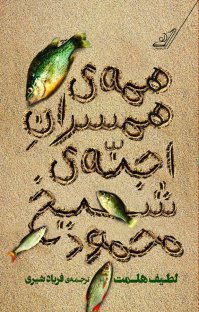 همه‌ی
همسرانِ
اجنّه‌ی
شیخ
محمود
لطیف هلمت ترجمه‌ی فریاد شیری